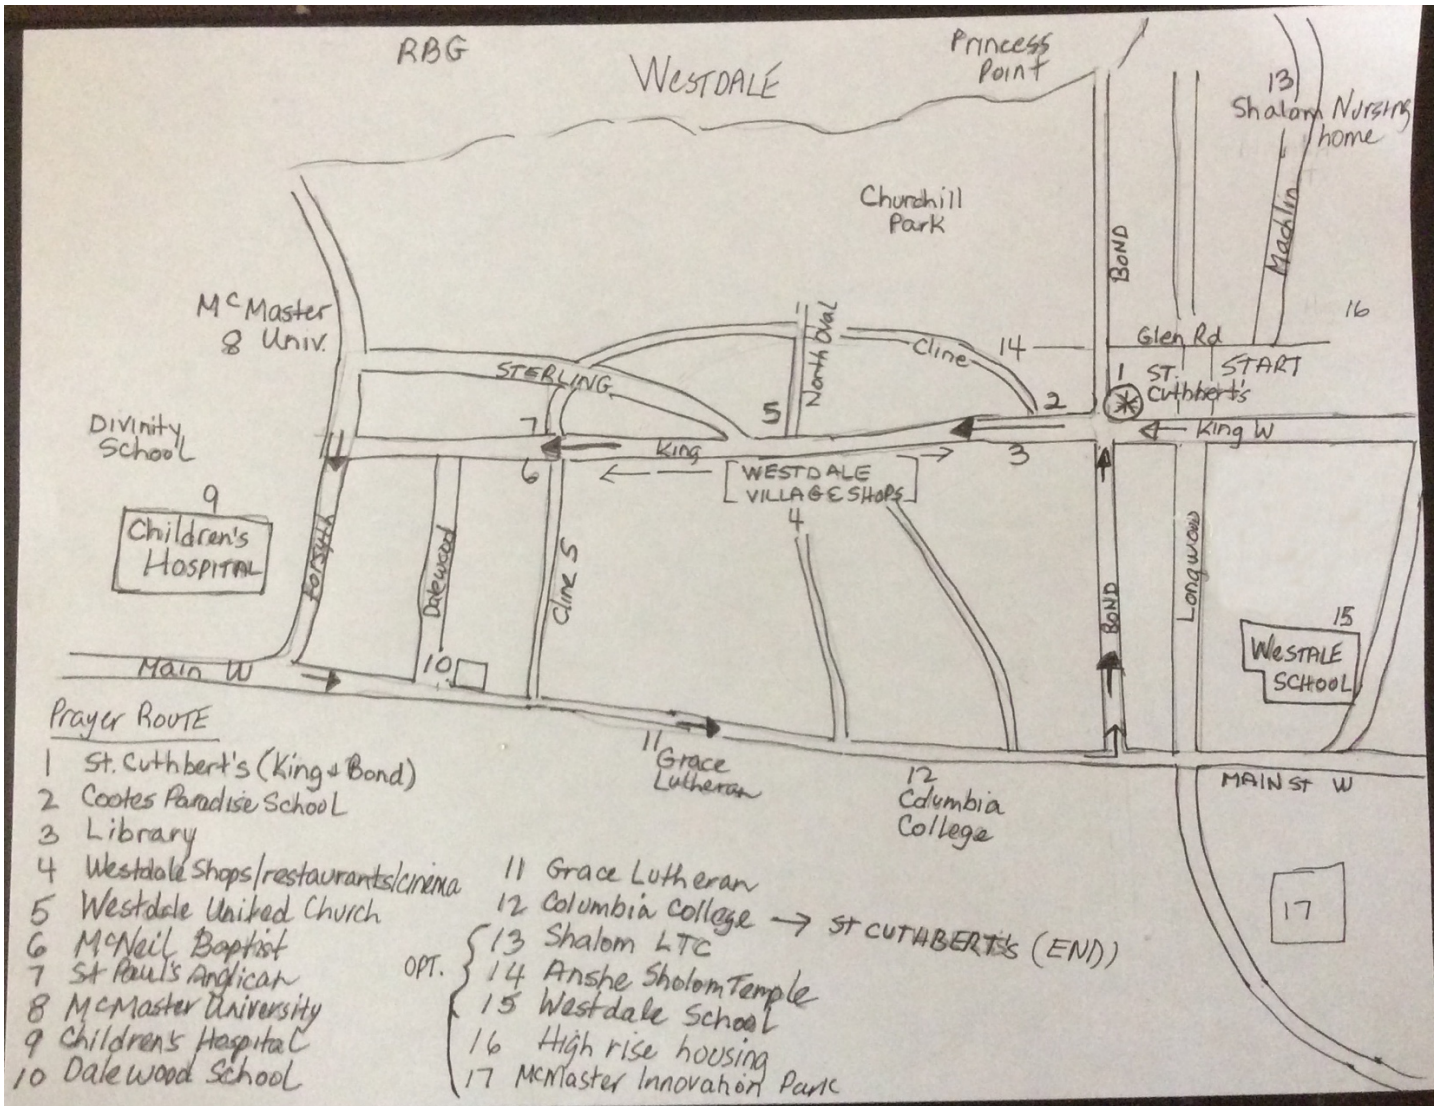 RBG
WESTDALE
Princess
Point
13
Shalom Nursing
home
Churchill
Park
BOND
Machlin
McMaster
8 Univ.
16
Glen Rd
North Oval
Cline
14
START
STERLING
1 ST.
Cuthbert's
5
2
7
Divinity
School
King
3
King W
6
WESTDALE
VILLAGE SHOPS
4
9
Children's
HOSPITAL
Forsyth
Dalewood
Cline S
BOND
Longwood
15
WESTALE
SCHOOL
10
Main W
11
Grace
Lutheran
12
Columbia
College
MAIN ST W
17
Prayer ROUTE
1 St. Cuthbert's (King & Bond)
2 Cootes Paradise School
3 Library
4 Westdale Shops/restaurants/cinema
5 Westdale United Church
6 McNeil Baptist
7 St Paul's Anglican
8 McMaster University
9 Children's Hospital
10 Dalewood School
11 Grace Lutheran
12 Columbia College → ST CUTHBERT'S (END)
OPT.
13 Shalom LTC
14 Anshe Sholom Temple
15 Westdale School
16 High rise housing
17 McMaster Innovation Park